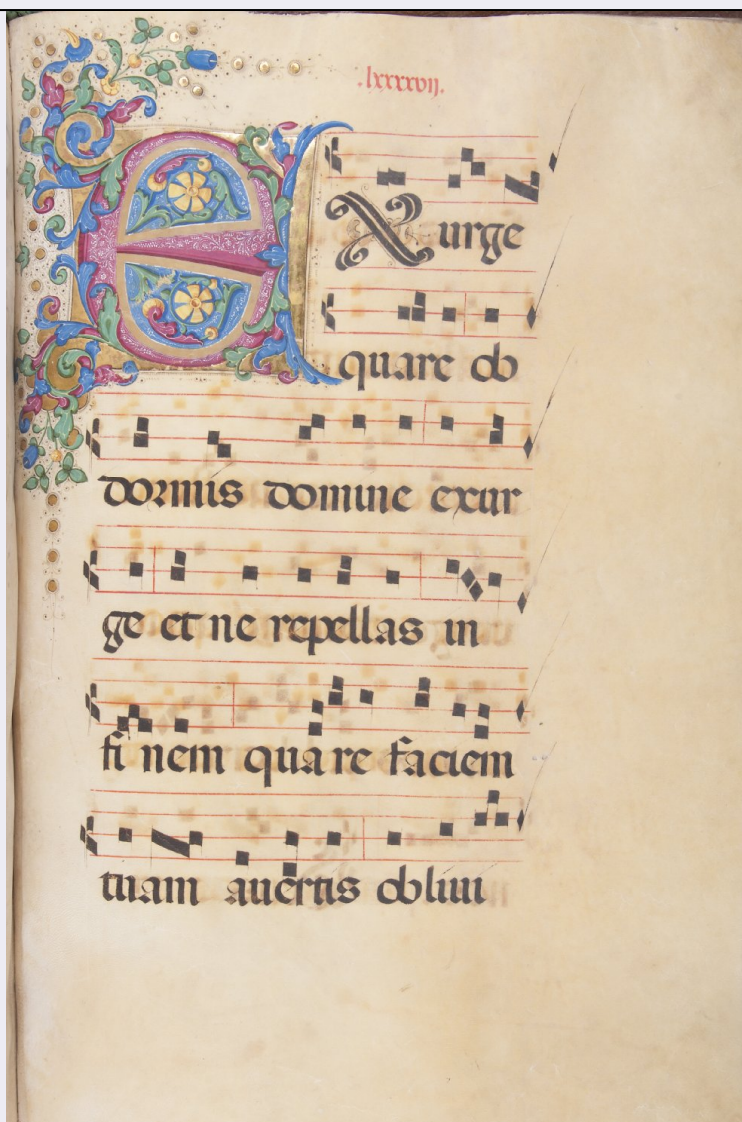 .lxxxxvii.
EXurge
quare ob
dormis domine exur
ge et ne repellas in
fi nem qua re faciem
tuam auertis obliui